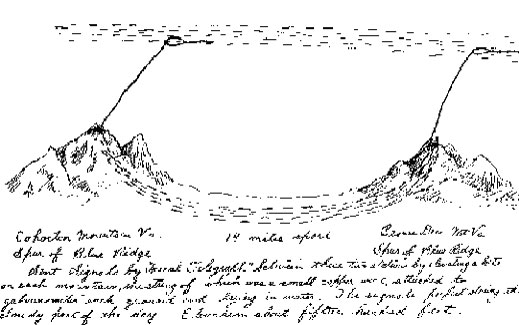 Cohocton Mountain Va. 14 miles apart Bear Den Mt Va
Spur of Blue Ridge Spur of Blue Ridge
Sent signals by aerial Telegraph between these two stations by elevating a kite
on each mountain, the string of which was a small copper wire, attached to
galvanometer with ground wire lying in water. The signals perfect strong at
cloudy part of the day Elevation about fifteen hundred feet.